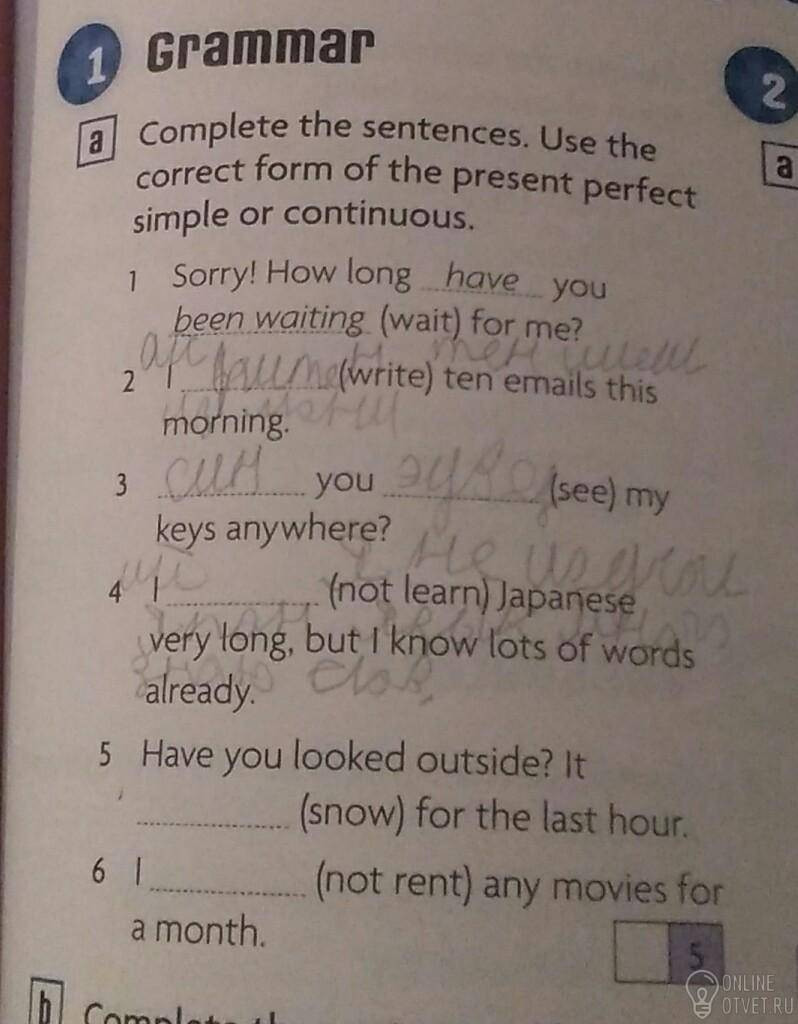 1 Grammar
2
a Complete the sentences. Use the
a
correct form of the present perfect
simple or continuous.
1 Sorry! How long have you
been waiting (wait) for me?
2 I (write) ten emails this
morning.
3 you (see) my
keys anywhere?
4 I (not learn) Japanese
very long, but I know lots of words
already.
5 Have you looked outside? It
(snow) for the last hour.
6 I (not rent) any movies for
a month.
5
b
ONLINE
OTVET.RU